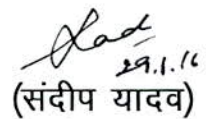 29.1.16
(संदीप यादव)